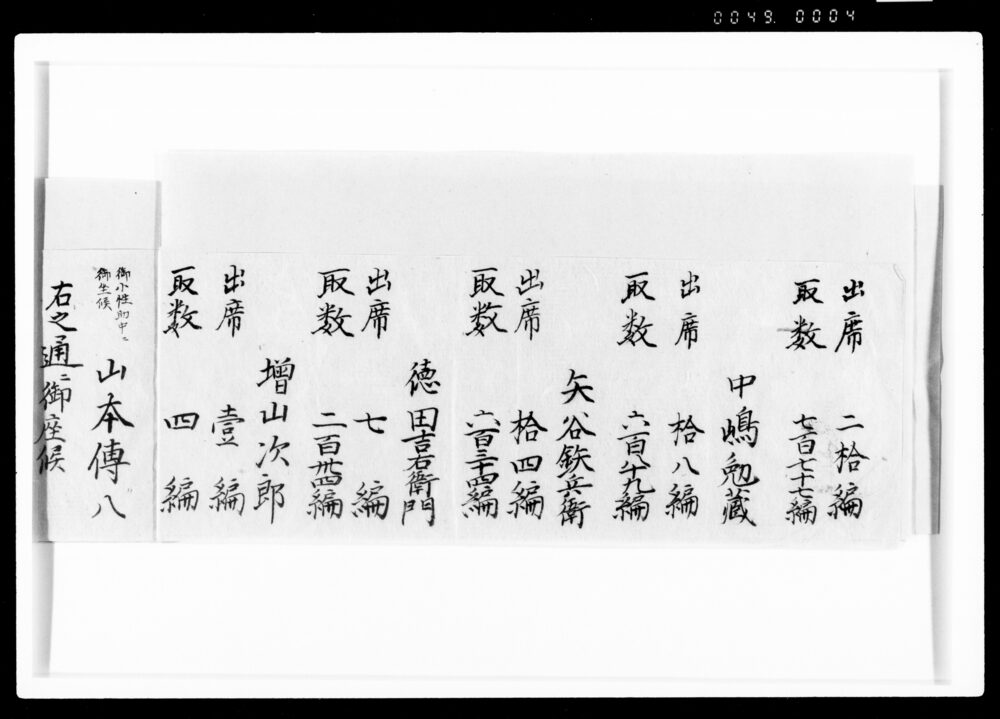 0049.0004
出席 二拾編
取数 七百七十七編
中嶋勉蔵
出席 拾八編
取数 六百八十九編
矢谷鉄兵衛
出席 拾四編
取数 六百三十四編
徳田吉右衛門
出席 七編
取数 二百廿四編
増山次郎
出席 壹編
取数 四編
御小性助中ニ
御坐候
山本傳八
右之通ニ御座候